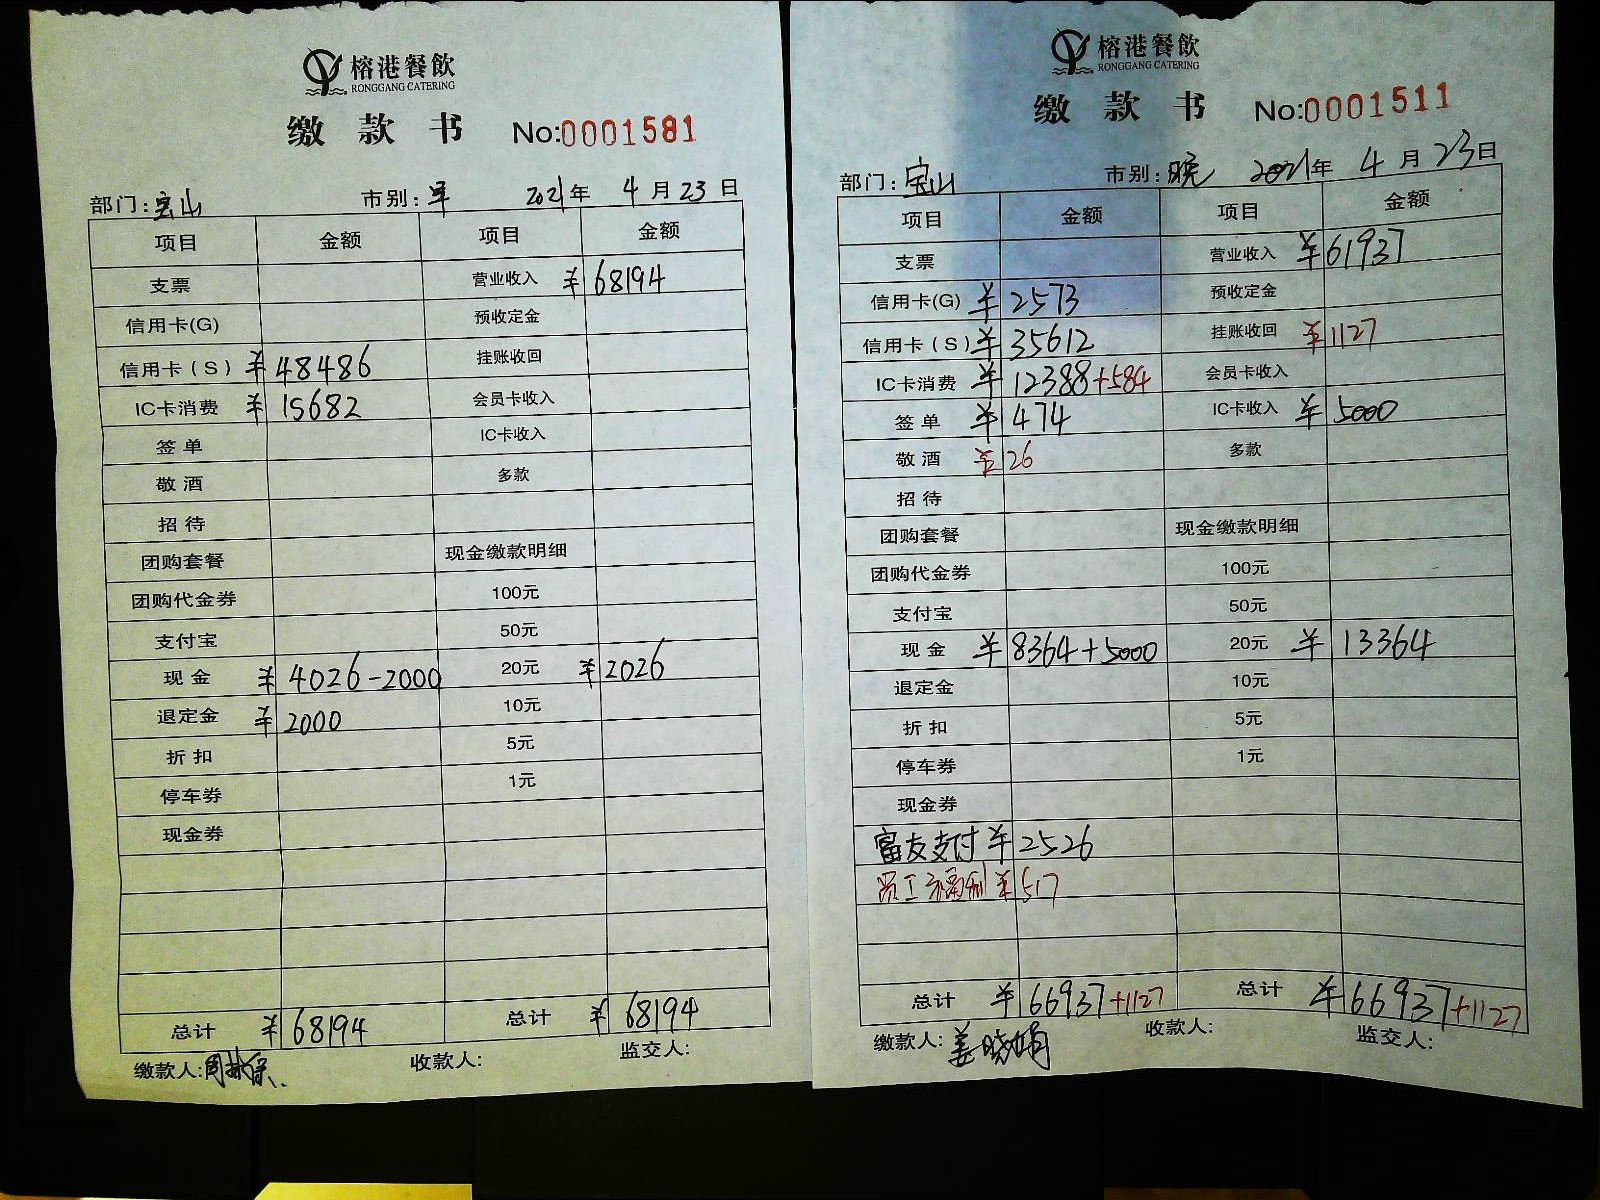 榕港餐飲
RONGGANG CATERING
缴款书 No:0001581
部门:宝山 市别:早 2021年4月23日
项目 金额 项目 金额
支票 营业收入 ¥68194
信用卡(G) 预收定金
信用卡(S) ¥48486 挂账收回
IC卡消费 ¥15682 会员卡收入
签单 IC卡收入
敬酒 多款
招待
团购套餐 现金缴款明细
团购代金券 100元
支付宝 50元
现金 ¥4026-2000 20元 ¥2026
退定金 ¥2000 10元
折扣 5元
停车券 1元
现金券
总计 ¥68194 总计 ¥68194
缴款人: 收款人: 监交人:
榕港餐飲
RONGGANG CATERING
缴款书 No:0001511
部门:宝山 市别:晚 2021年4月23日
项目 金额 项目 金额
支票 营业收入 ¥61937
信用卡(G) ¥2573 预收定金
信用卡(S) ¥35612 挂账收回 ¥1127
IC卡消费 ¥12388+584 会员卡收入
签单 ¥474 IC卡收入 ¥5000
敬酒 ¥26 多款
招待
团购套餐 现金缴款明细
团购代金券 100元
支付宝 50元
现金 ¥8364+5000 20元 ¥13364
退定金 10元
折扣 5元
停车券 1元
现金券
富友支付 ¥2526
员工福利 ¥517
总计 ¥66937+1127 总计 ¥66937+1127
缴款人:姜晓娟 收款人: 监交人: